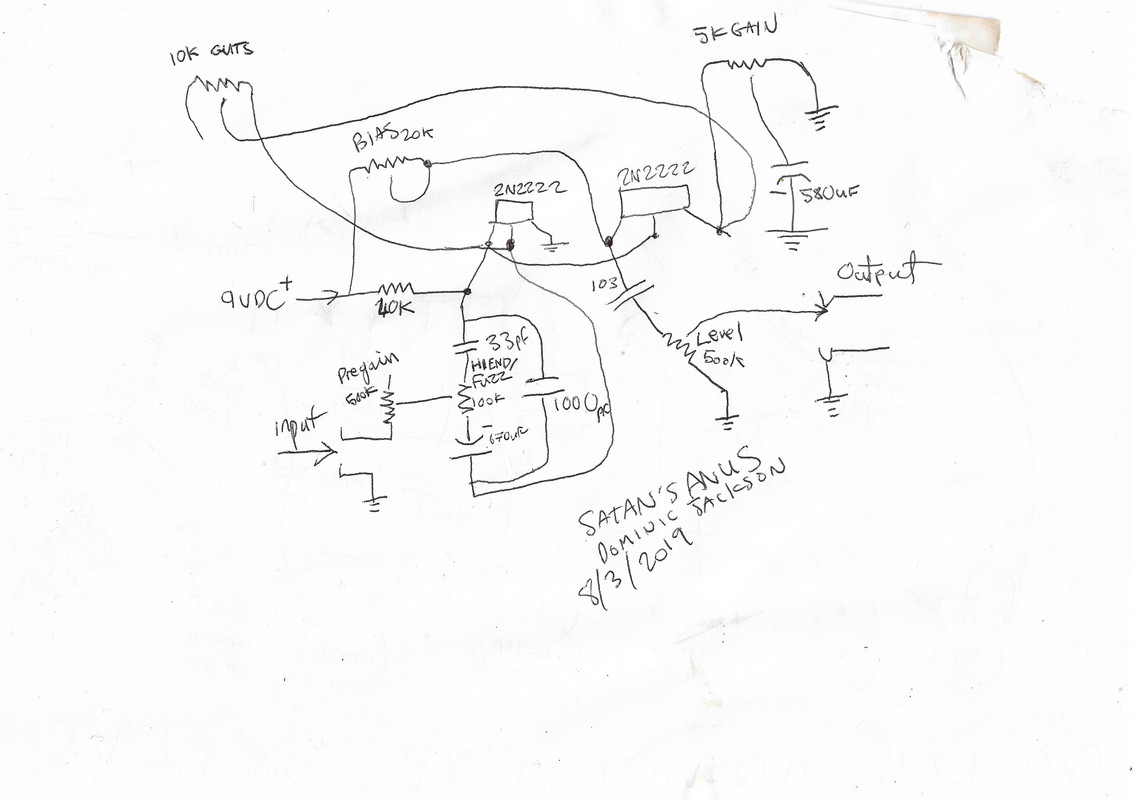 10K GUTS
5K GAIN
BIAS 20K
2N2222
2N2222
580uF
9VDC+
103
Output
Level
500K
33pf
HIEND/
FUZZ
100K
Pregain
500K
input
SATAN'S ANUS
DOMINIC JACKSON
8/3/2019